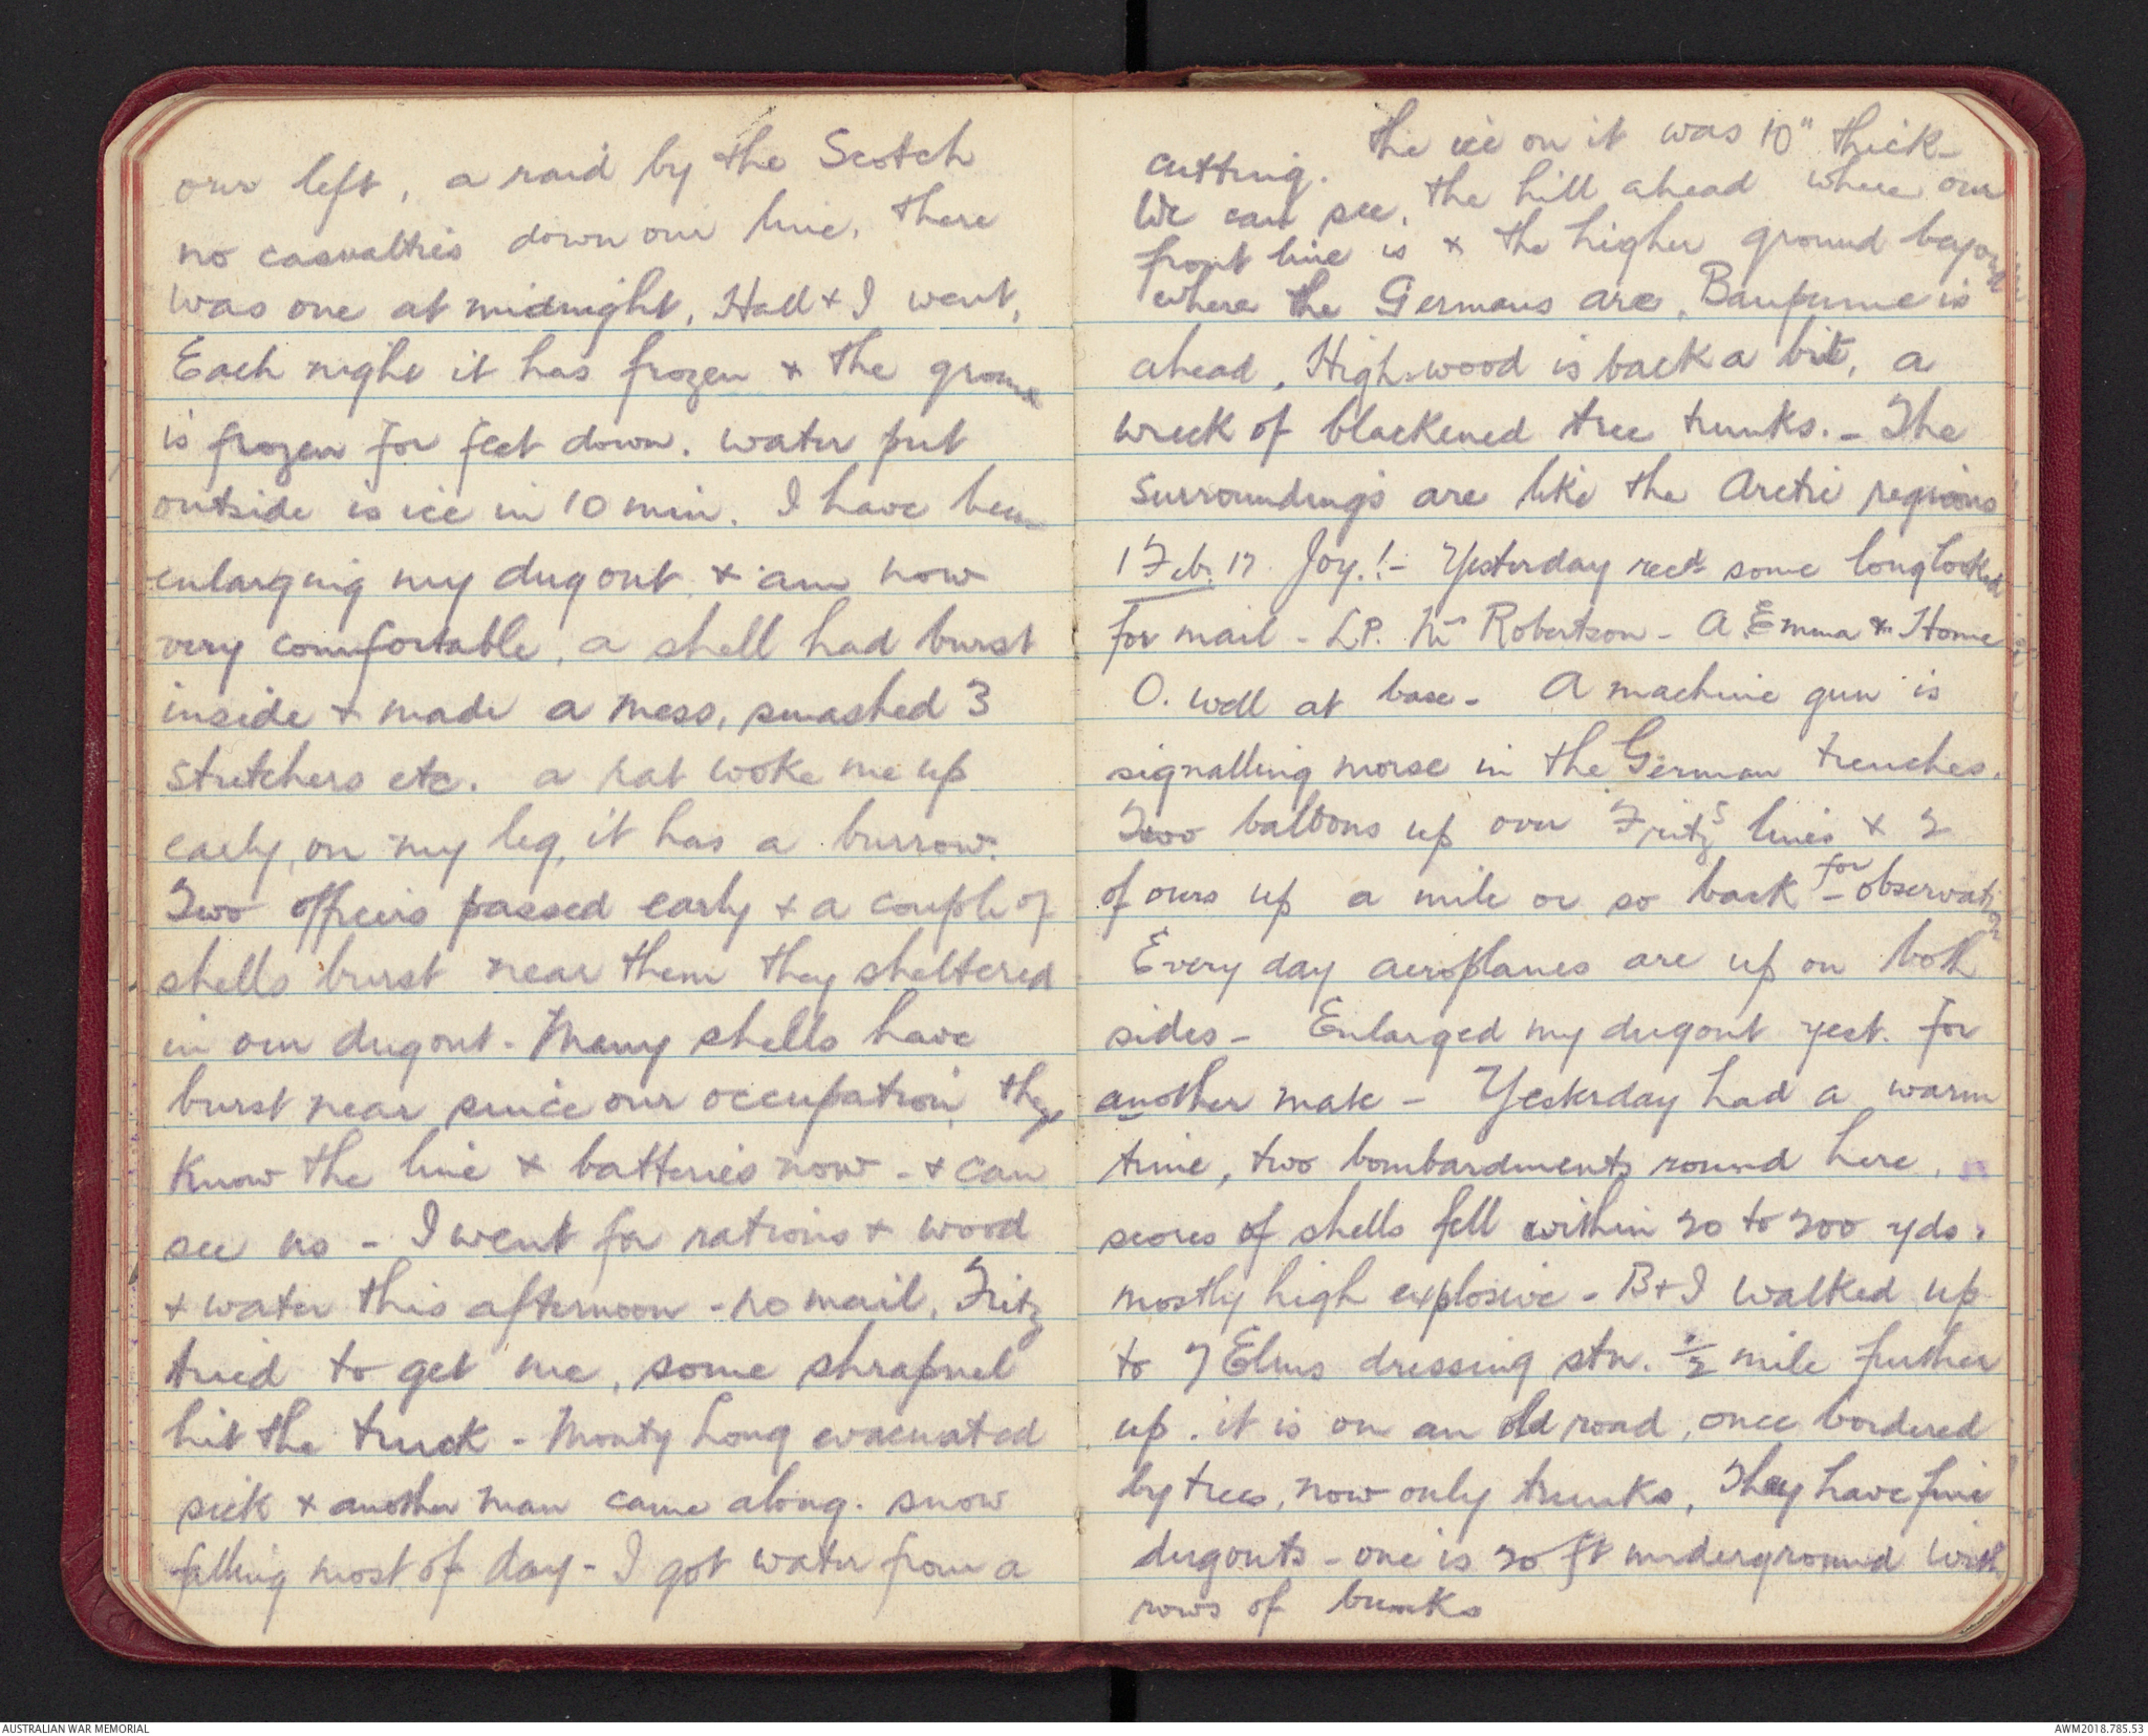 our left, a raid by the Scotch
no casualties down our line, there
was one at midnight, Hall & I went,
Each night it has frozen & the ground
is frozen for feet down. water put
outside is ice in 10 min. I have been
enlarging my dugout & am now
very comfortable, a shell had burst
inside & made a mess, smashed 3
stretchers etc. a rat woke me up
early, on my leg, it has a burrow.
Two officers passed early & a couple of
shells burst near them they sheltered
in our dugout. Many shells have
burst near since our occupation, they
know the line & batteries now - & can
see us - I went for rations & wood
& water this afternoon - no mail, Fritz
tried to get me, some shrapnel
hit the truck - Monty Long evacuated
sick & another man came along. snow
falling most of day - I got water from a
cutting. The ice on it was 10" thick -
We can see, the hill ahead where our
front line is & the higher ground beyond
where the Germans are, Baupaume is
ahead, High-wood is back a bit, a
wreck of blackened tree trunks. - The
surroundings are like the Arctic regions
1 Feb. 17 Joy.! - Yesterday recd some long looked
for mail - L.P. Mr Robertson - A. Emma & Home
O. well at base - A machine gun is
signalling morse in the German trenches.
Two balloons up over Fritz's lines & 2
of ours up a mile or so back - for observation
Every day aeroplanes are up on both
sides - Enlarged my dugout yest. for
another mate - Yesterday had a warm
time, two bombardments round here,
scores of shells fell within 20 to 200 yds.
mostly high explosive - B & I walked up
to 7 Elms dressing stn. 1/2 mile further
up. it is on an old road, once bordered
by trees, now only trunks, They have fine
dugouts - one is 20 ft underground with
rows of bunks
AUSTRALIAN WAR MEMORIAL
AWM2018.785.53